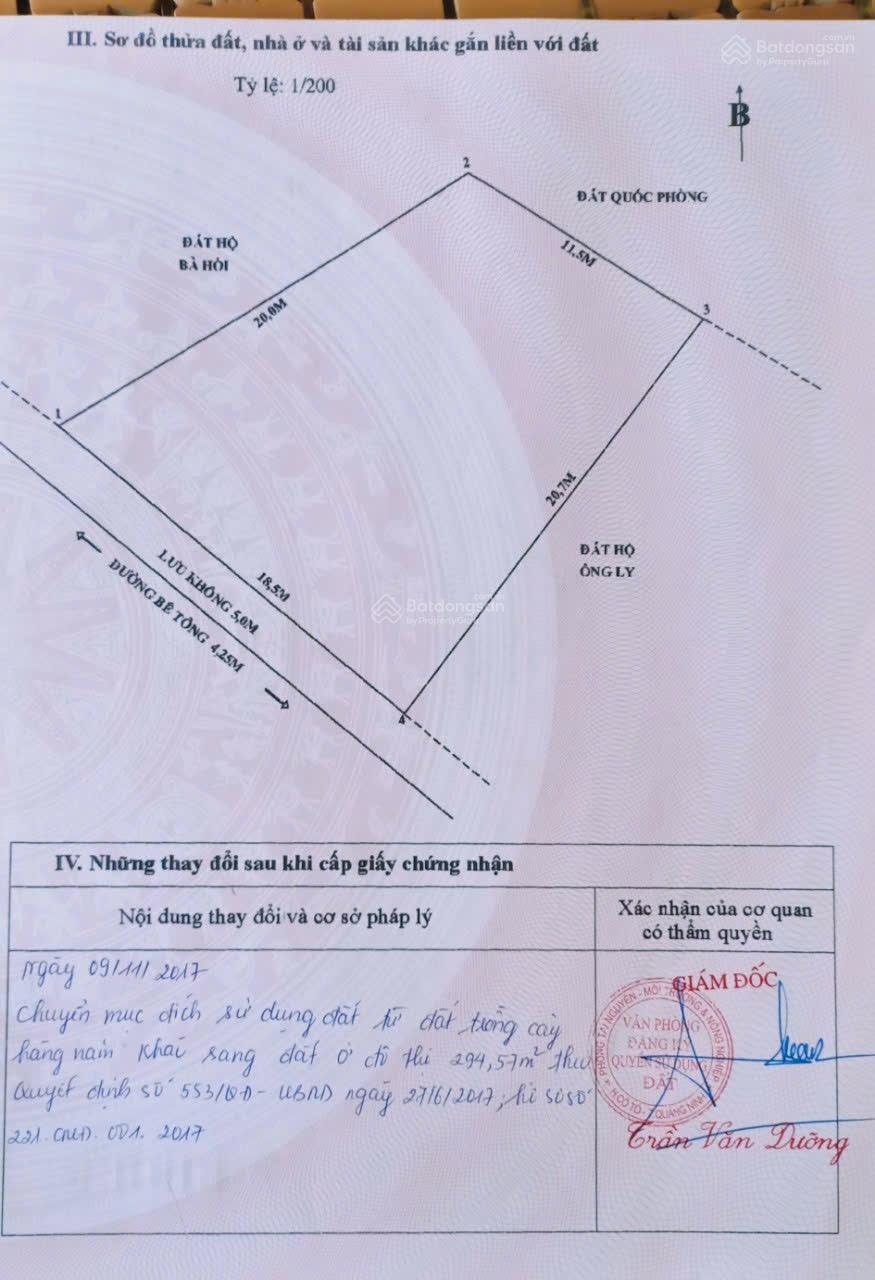 III. Sơ đồ thửa đất, nhà ở và tài sản khác gắn liền với đất
Batdongsan.com.vn
by PropertyGuru
Tỷ lệ: 1/200
B
2
ĐẤT QUỐC PHÒNG
ĐẤT HỘ
BÀ HÒI
11,5M
20,0M
3
1
20,7M
ĐẤT HỘ
ÔNG LY
LƯU KHÔNG 5,0M
18,5M
ĐƯỜNG BÊ TÔNG 4,25M
Batdongsan
by PropertyGuru
4
IV. Những thay đổi sau khi cấp giấy chứng nhận
Nội dung thay đổi và cơ sở pháp lý
Xác nhận của cơ quan
có thẩm quyền
Ngày 09/11/2017
Chuyển mục đích sử dụng đất từ đất trồng cây
hàng năm khác sang đất ở đô thị 294,57m² theo
Quyết định số 553/QĐ-UBND ngày 27/6/2017; hồ sơ số
221.CMĐ.001.2017
GIÁM ĐỐC
PHÒNG TÀI NGUYÊN - MÔI TRƯỜNG & NÔNG NGHIỆP
VĂN PHÒNG
ĐĂNG KÝ
QUYỀN SỬ DỤNG
ĐẤT
H.CÔ TÔ - T.QUẢNG NINH
Trần Văn Dưỡng